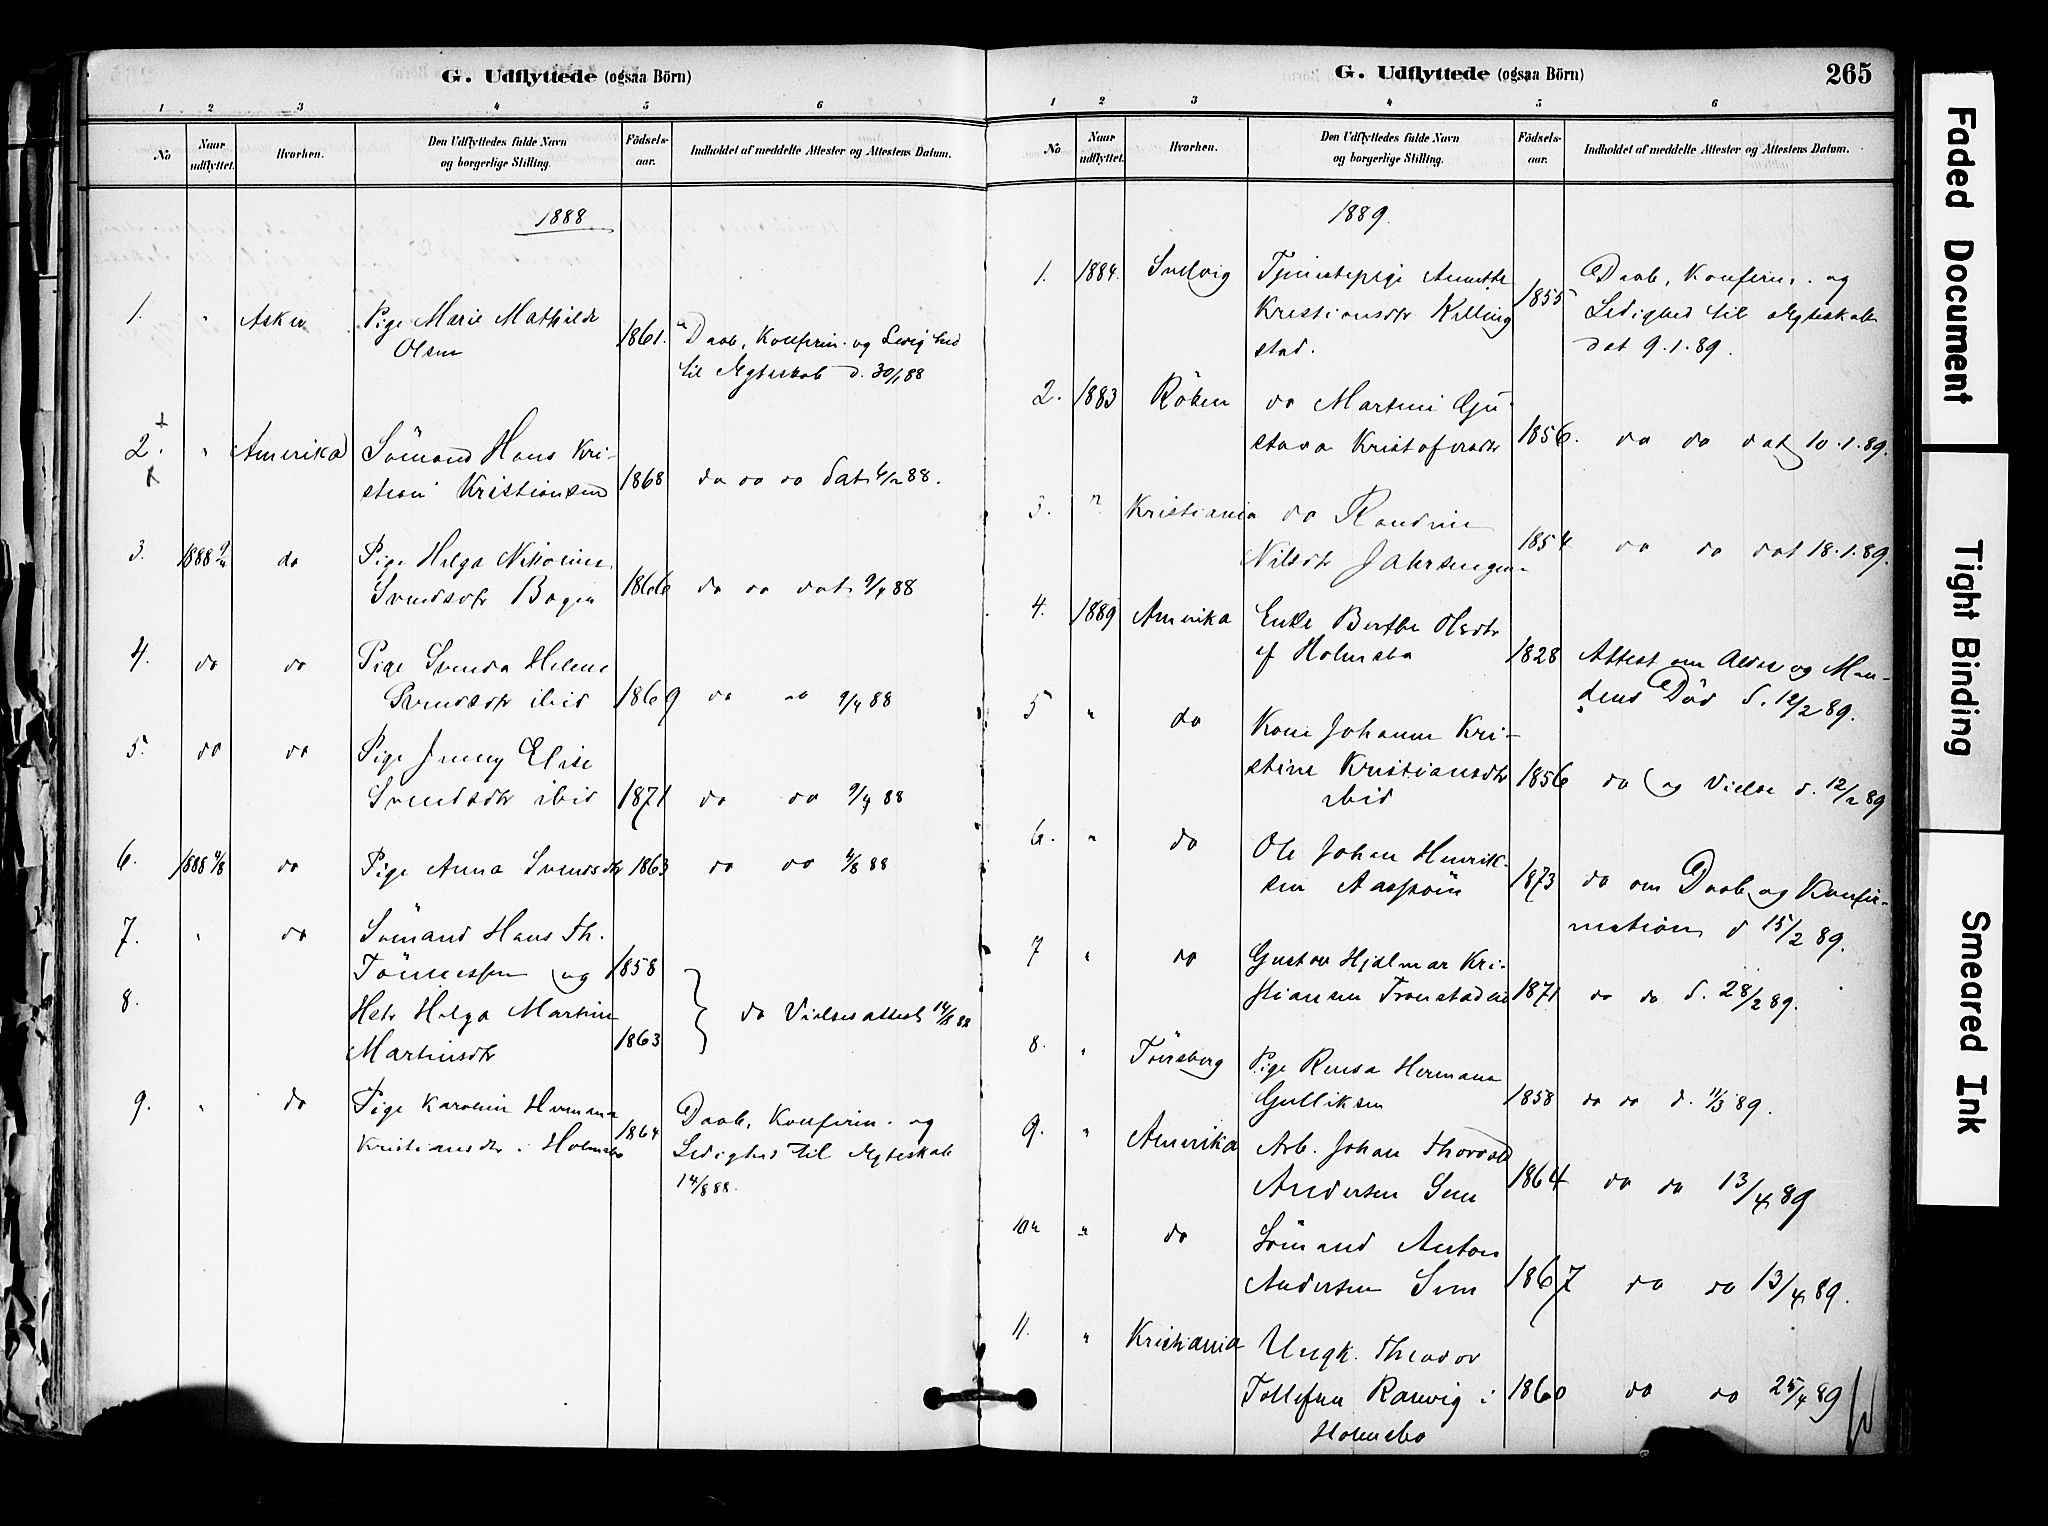 G. Udflyttede (ogsaa Börn)
1 2 3 4 5 6
No
Naar udflyttet.
Hvorhen.
Den Udflyttedes fulde Navn og borgerlige Stilling.
Födsels-aar.
Indholdet af meddelte Attester og Attestens Datum.
1888
1. " Asker Pige Marie Mathilde
Olsen 1861. Daab, Konfirm. og Ledighed
til Ægteskab d. 30/1 88
2. " Amerika Sömand Hans Kri-
stian Kristiansen 1868 do do do dat 4/2 88.
3. 1888 9/4 do Pige Helga Nikoline
Svendsdtr Bogen 1866 do do dat 9/4 88
4. do do Pige Svenda Helene
Svendsdtr ibid 1869 do do 9/4 88
5. do do Pige Jenny Elise
Svendsdtr ibid 1871 do do 9/4 88
6. 1888 4/8 do Pige Anna Svendsdtr 1863 do do 4/8 88
7. " do Sömand Hans Th.
Tönnessen og 1858
8. Hstr Helga Martine
Martinsdtr 1863 do Vielsesattest 14/8 88
9. " do Pige Karoline Hermana
Kristiansdtr. Holmsbo 1864 Daab, Konfirm. og
Ledighed til Ægteskab
14/8 88.
G. Udflyttede (ogsaa Börn) 265
1 2 3 4 5 6
No
Naar udflyttet.
Hvorhen.
Den Udflyttedes fulde Navn og borgerlige Stilling.
Födsels-aar.
Indholdet af meddelte Attester og Attestens Datum.
1889.
1. 1884. Svelvig Tjenestepige Annette
Kristiansdtr Killing
stad. 1855 Daab, Konfirm. og
Ledighed til Ægteskab
dat 9.1.89.
2. 1883 Röken do Martine Gu-
stava Kristofersdtr 1856. do do dat 10.1.89.
3. " Kristiania do Randine
Nilsdtr Jahrsengen 1854 do do dat 18.1.89.
4. 1889 Amerika Enke Berthe Olsdtr
af Holmsbo 1828 Attest om Alder og Man-
dens Död d. 12/2 89.
5 " do Kone Johanne Kri-
stine Kristiansdtr
ibid 1856 do og Vielse d. 12/2 89
6. " do Ole Johan Henrik-
sen Aaspöin 1873 do om Daab og Konfir-
mation d 15/2 89.
7 " do Gustav Hjalmar Kri-
stiansen Tronstadeie 1871 do do d. 28/2 89.
8. " Tönsberg Pige Rensa Hermana
Gulliksen 1858 do do d. 11/3 89.
9. " Amerika Arb. Johan Thorvald
Andersen Sem 1864 do do 13/4 89
10 " do Sömand Anton
Andersen Sem 1867 do do 13/4 89.
11. " Kristiania Ungk. Theodor
Tollefsen Ranvig i
Holmsbo 1860 do do 25/4 89
Faded Document
Tight Binding
Smeared Ink